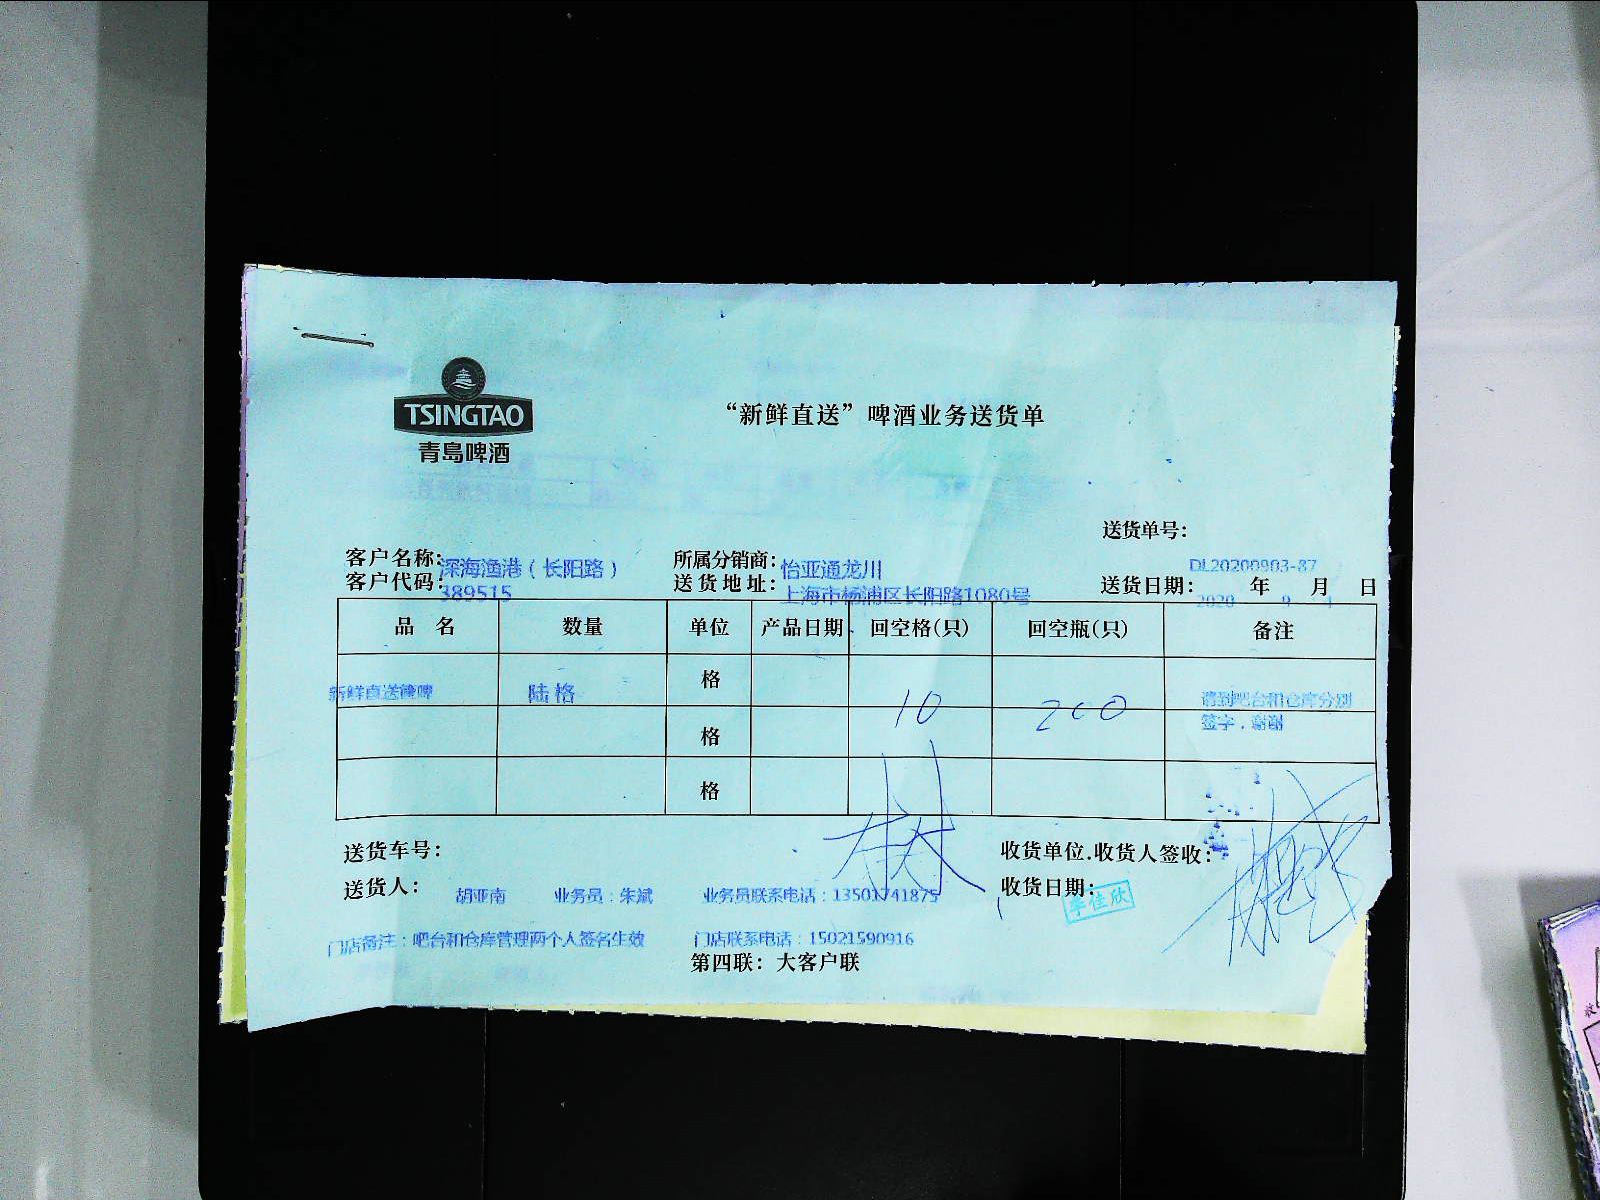 TSINGTAO
青岛啤酒
“新鲜直送”啤酒业务送货单
送货单号：DL20200903-87
客户名称：深海渔港（长阳路） 所属分销商：怡亚通龙川
客户代码：389515 送货地址：上海市杨浦区长阳路1080号 送货日期：2020年9月4日
品 名 数量 单位 产品日期 回空格(只) 回空瓶(只) 备注
新鲜直送 陆格 格 10 200 请到吧台和仓库分别签字，谢谢
格
格
送货车号： 收货单位.收货人签收：
送货人：胡亚南 业务员：朱斌 业务员联系电话：13501741875 收货日期：
李佳欣
门店备注：吧台和仓库管理两个人签名生效 门店联系电话：15021590916
第四联：大客户联